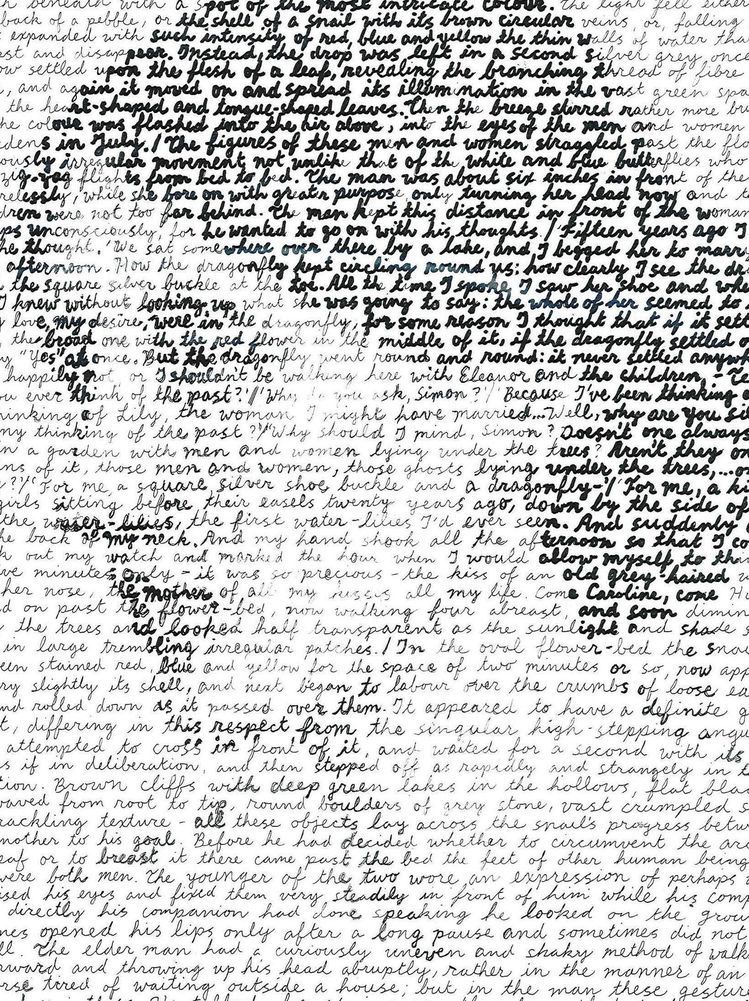 back of a pebble, or the shell of a snail with its brown circular veins, or, falling
expanded with such intensity of red, blue and yellow the thin walls of water tha
st and disappear. Instead, the drop was left in a second silver grey once
ow settled upon the flesh of a leaf, revealing the branching thread of fibre
, and again it moved on and spread its illumination in the vast green spa
the heart-shaped and tongue-shaped leaves. Then the breeze stirred rather more br
he colour was flashed into the air above, into the eyes of the men and women
dens in July. / The figures of these men and women straggled past the flo
ously irregular movement not unlike that of the white and blue butterflies who
zig-zag flights from bed to bed. The man was about six inches in front of the
relessly, while she bore on with greater purpose only turning her head now and t
dren were not too far behind. The man kept this distance in front of the woman
ps unconsciously, for he wanted to go on with his thoughts. / Fifteen years ago I
he thought. 'We sat somewhere over there by a lake, and, I begged her to marry
afternoon. How the dragonfly kept circling round us: how clearly I see the dr
the square silver buckle at the toe. All the time I spoke, I saw her shoe and whe
I knew without looking up what she was going to say: the whole of her seemed to
y love, my desire, were in the dragonfly, for some reason I thought that if it sett
the broad one with the red flower in the middle of it, if the dragonfly settled o
y "Yes" at once. But the dragonfly went round and round: it never settled anywh
happily not, or I shouldn't be walking here with Eleanor and the children, - Te
ou ever think of the past?'/'Why do you ask, Simon?'/'Because I've been thinking o
inking of Lily, the woman I might have married...Well, why are you sil
my thinking of the past?'/'Why should I mind, Simon? Doesn't one always
n a garden with men and women lying under the trees? Aren't they on
ns of it, those men and women, those ghosts lying under the trees,...on
y?'/'For me, a square silver shoe buckle and a dragonfly-'/'For me, a ki
girls sitting before their easels twenty years ago, down by the side of
the water-lilies, the first water-lilies I'd ever seen. And suddenly
he back of my neck. And my hand shook all the afternoon so that I co
k out my watch and marked the hour when I would allow myself to thin
ve minutes only - it was so precious - the kiss of an old grey-haired w
her nose, the mother of all my kisses all my life. Come Caroline, come Hu
d on past the flower-bed, now walking four abreast, and soon dimin
the trees and looked half transparent as the sunlight and shade s
in large trembling irregular patches. / In the oval flower-bed the snai
een stained red, blue and yellow for the space of two minutes or so, now app
ry slightly its shell, and next began to labour over the crumbs of loose ea
nd rolled down as it passed over them. It appeared to have a definite g
t, differing in this respect from the singular high-stepping angu
attempted to cross in front of it, and waited for a second with its
s if in deliberation, and then stepped off as rapidly and strangely in t
tion. Brown cliffs with deep green lakes in the hollows, flat blad
waved from root to tip, round boulders of grey stone, vast crumpled s
rackling texture - all these objects lay across the snail's progress betw
nother to his goal. Before he had decided whether to circumvent the arc
eaf or to breast it there came past the bed the feet of other human being
were both men. The younger of the two wore an expression of perhaps u
ised his eyes and fixed them very steadily in front of him while his comp
directly his companion had done speaking he looked on the grou
mes opened his lips only after a long pause and sometimes did not
ll. The elder man had a curiously uneven and shaky method of walk
orward and throwing up his head abruptly, rather in the manner of an
rse tired of waiting outside a house; but in the man these gestur